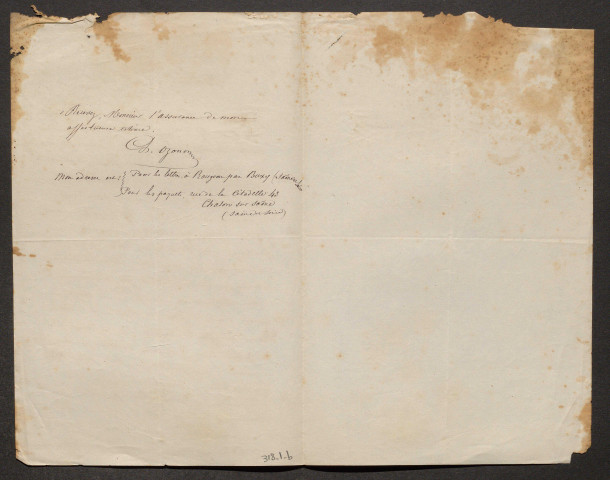 Recevez, Monsieur, l'assurance de mon
affectueuse estime.
Ch. Ozanon
Mon adresse est: Pour les lettres à par Buxy (Saône
Pour les paquets rue de la Citadelle 43
Chalon sur Saône
(Saône et Loire)
318.1.6